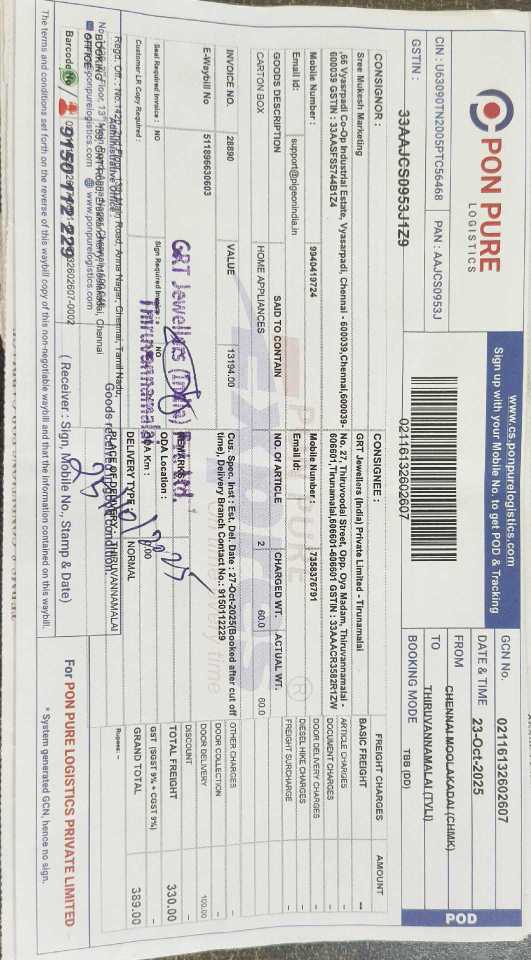 PON PURE
LOGISTICS
www.cs.ponpurelogistics.com
Sign up with your Mobile No. to get POD & Tracking
CIN : U63090TN2005PTC56468 PAN : AAJCS0953J
GSTIN : 33AAJCS0953J1Z9
02116132602607
GCN NO. 02116132602607
DATE & TIME 23-Oct-2025
FROM CHENNAI-MOOLAKADAI (CHMK)
TO THIRUVANNAMALAI (TVLI)
BOOKING MODE TBB (DD)
POD
CONSIGNOR :
Sree Mukesh Marketing
,66 Vyasrpadi Co-Op Industrial Estate, Vyasarpadi, Chennai - 600039,Chennai,600039-
600039 GSTIN : 33AASFS5744B1Z4
Mobile Number : 9940419724
Email Id: support@pigeonindia.in
CONSIGNEE :
GRT Jewellers (India) Private Limited - Tirunamalai
No. 27, Thiruvoodal Street, Opp. Oya Madam, Thiruvannamalai -
606601,Tirunamalai,606601-606601 GSTIN : 33AAACR3582R1ZW
Mobile Number : 7358376791
Email Id:
GOODS DESCRIPTION SAID TO CONTAIN NO. OF ARTICLE CHARGED WT. ACTUAL WT.
CARTON BOX HOME APPLIANCES 2 60.0 60.0
INVOICE NO. 28890 VALUE 13194.00
E-Waybill No 511896630603
Cus. Spec. Inst : Est. Del. Date : 27-Oct-2025(Booked after cut off
time), Delivery Branch Contact No.: 9150112229
REMARKS
ODA Location :
ODA Km : 0.00
DELIVERY TYPE : NORMAL
PLACE OF DELIVERY : THIRUVANNAMALAI
Seal Required Invoice : NO Sign Required Invoice : NO
Customer LR Copy Required :
GRT Jewellers (India) Pvt. Ltd.
Thiruvannamalai
FREIGHT CHARGES AMOUNT
BASIC FREIGHT --
ARTICLE CHARGES
DOCUMENT CHARGES
DOOR DELIVERY CHARGES
DIESEL HIKE CHARGES
FREIGHT SURCHARGE
OTHER CHARGES
DOOR COLLECTION
DOOR DELIVERY 100.00
DISCOUNT
TOTAL FREIGHT 330.00
GST (SGST 9% + CGST 9%)
GRAND TOTAL 389.00
Rupees: --
Goods received in good condition.
(Receiver : Sign, Mobile No., Stamp & Date)
For PON PURE LOGISTICS PRIVATE LIMITED
* System generated GCN, hence no sign.
BOOKING OFFICE
www.ponpurelogistics.com
9150 112 229
The terms and conditions set forth on the reverse of this waybill copy of this non-negotiable waybill and that the information contained on this waybill.